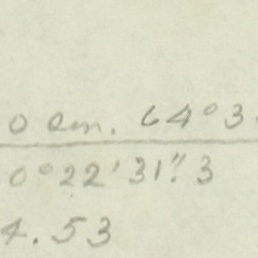 0 cm. 64°3
0°22'31".3
4.53